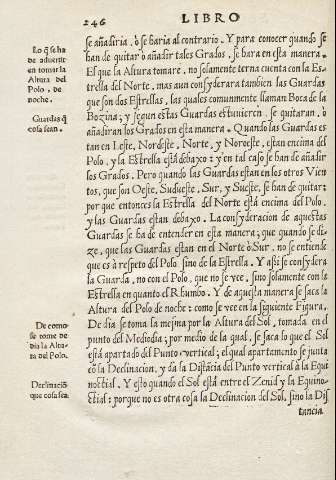 246
LIBRO
Lo q̃ se ha
de advertir
en tomar la
Altura del
Polo, de
noche.
Guardas q̃
cosa sean.
De como
se tome de
dia la Altu
ra del Polo.
Declinació
que cosa sea.
se añadiria, ò se haria al contrario. Y para conocer quando se
han de quitar ò añadir tales Grados, se hara en esta manera.
El que la Altura tomare, no solamente terna cuenta con la Es
trella del Norte, mas aun consyderara tambien las Guardas
que son dos Estrellas, las quales comunmente llaman Boca de la
Bozina; y segun estas Guardas estuvieren se quitaran, ò
añadiran los Grados en esta manera. Quando las Guardas es
tan en Leste, Nordeste, Norte, y Noroeste, estan encima del
Polo, y la Estrella està debaxo: y en tal caso se han de añadir
los Grados. Pero quando las Guardas estan en los otros Vien
tos, que son Oeste, Sudueste, Sur, y Sueste, se han de quitar:
por que entonces la Estrella del Norte està encima del Polo,
y las Guardas estan debaxo. La consyderacion de aquestas
Guardas se ha de entender en esta manera; que quando se di-
ze, que las Guardas estan en el Norte ò Sur, no se entiende
que es à respeto del Polo sino de la Estrella. Y assi se consydera
la Guarda, no con el Polo, que no se vee, sino solamente con la
Estrella en quanto el Rhumbo. Y de aquesta manera se saca la
Altura del Polo de noche: como se vee en la siguiente Figura.
De dia se toma la mesma por la Altura del Sol, tomada en el
punto del Mediodia; por medio de la qual, se saca lo que el Sol
està apartado del Punto vertical; el qual apartamento se junta
cõ la Declinacion, y da la Distãcia del Punto vertical à la Equi
noctial. Y esto quando el Sol està entre el Zenid y la Equino-
ctial: porque no es otra cosa la Declinacion del Sol, sino la Dis
tancia